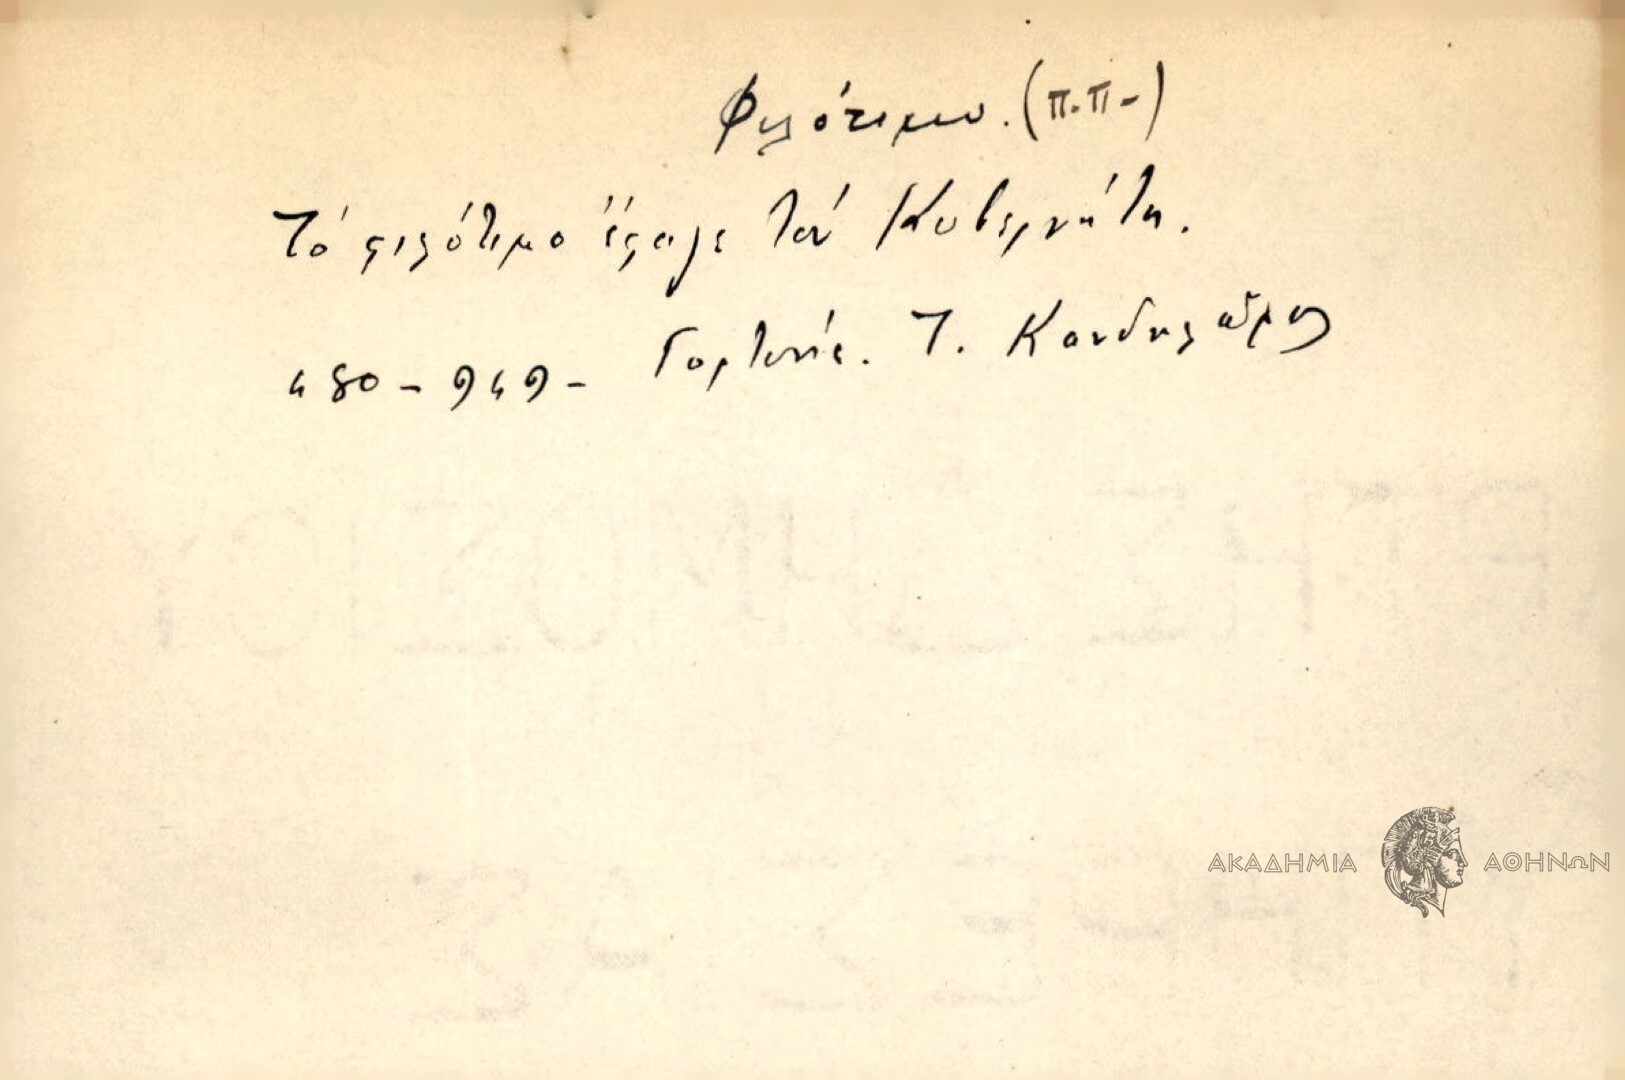 Φιλότιμο. (Π.Π-)
Τό φιλότιμο έφαγε τόν Κυβερνήτη.
480-949- Γορτυνία. Τ. Κανδηλῶρος
ΑΚΑΔΗΜΙΑ ΑΘΗΝΩΝ